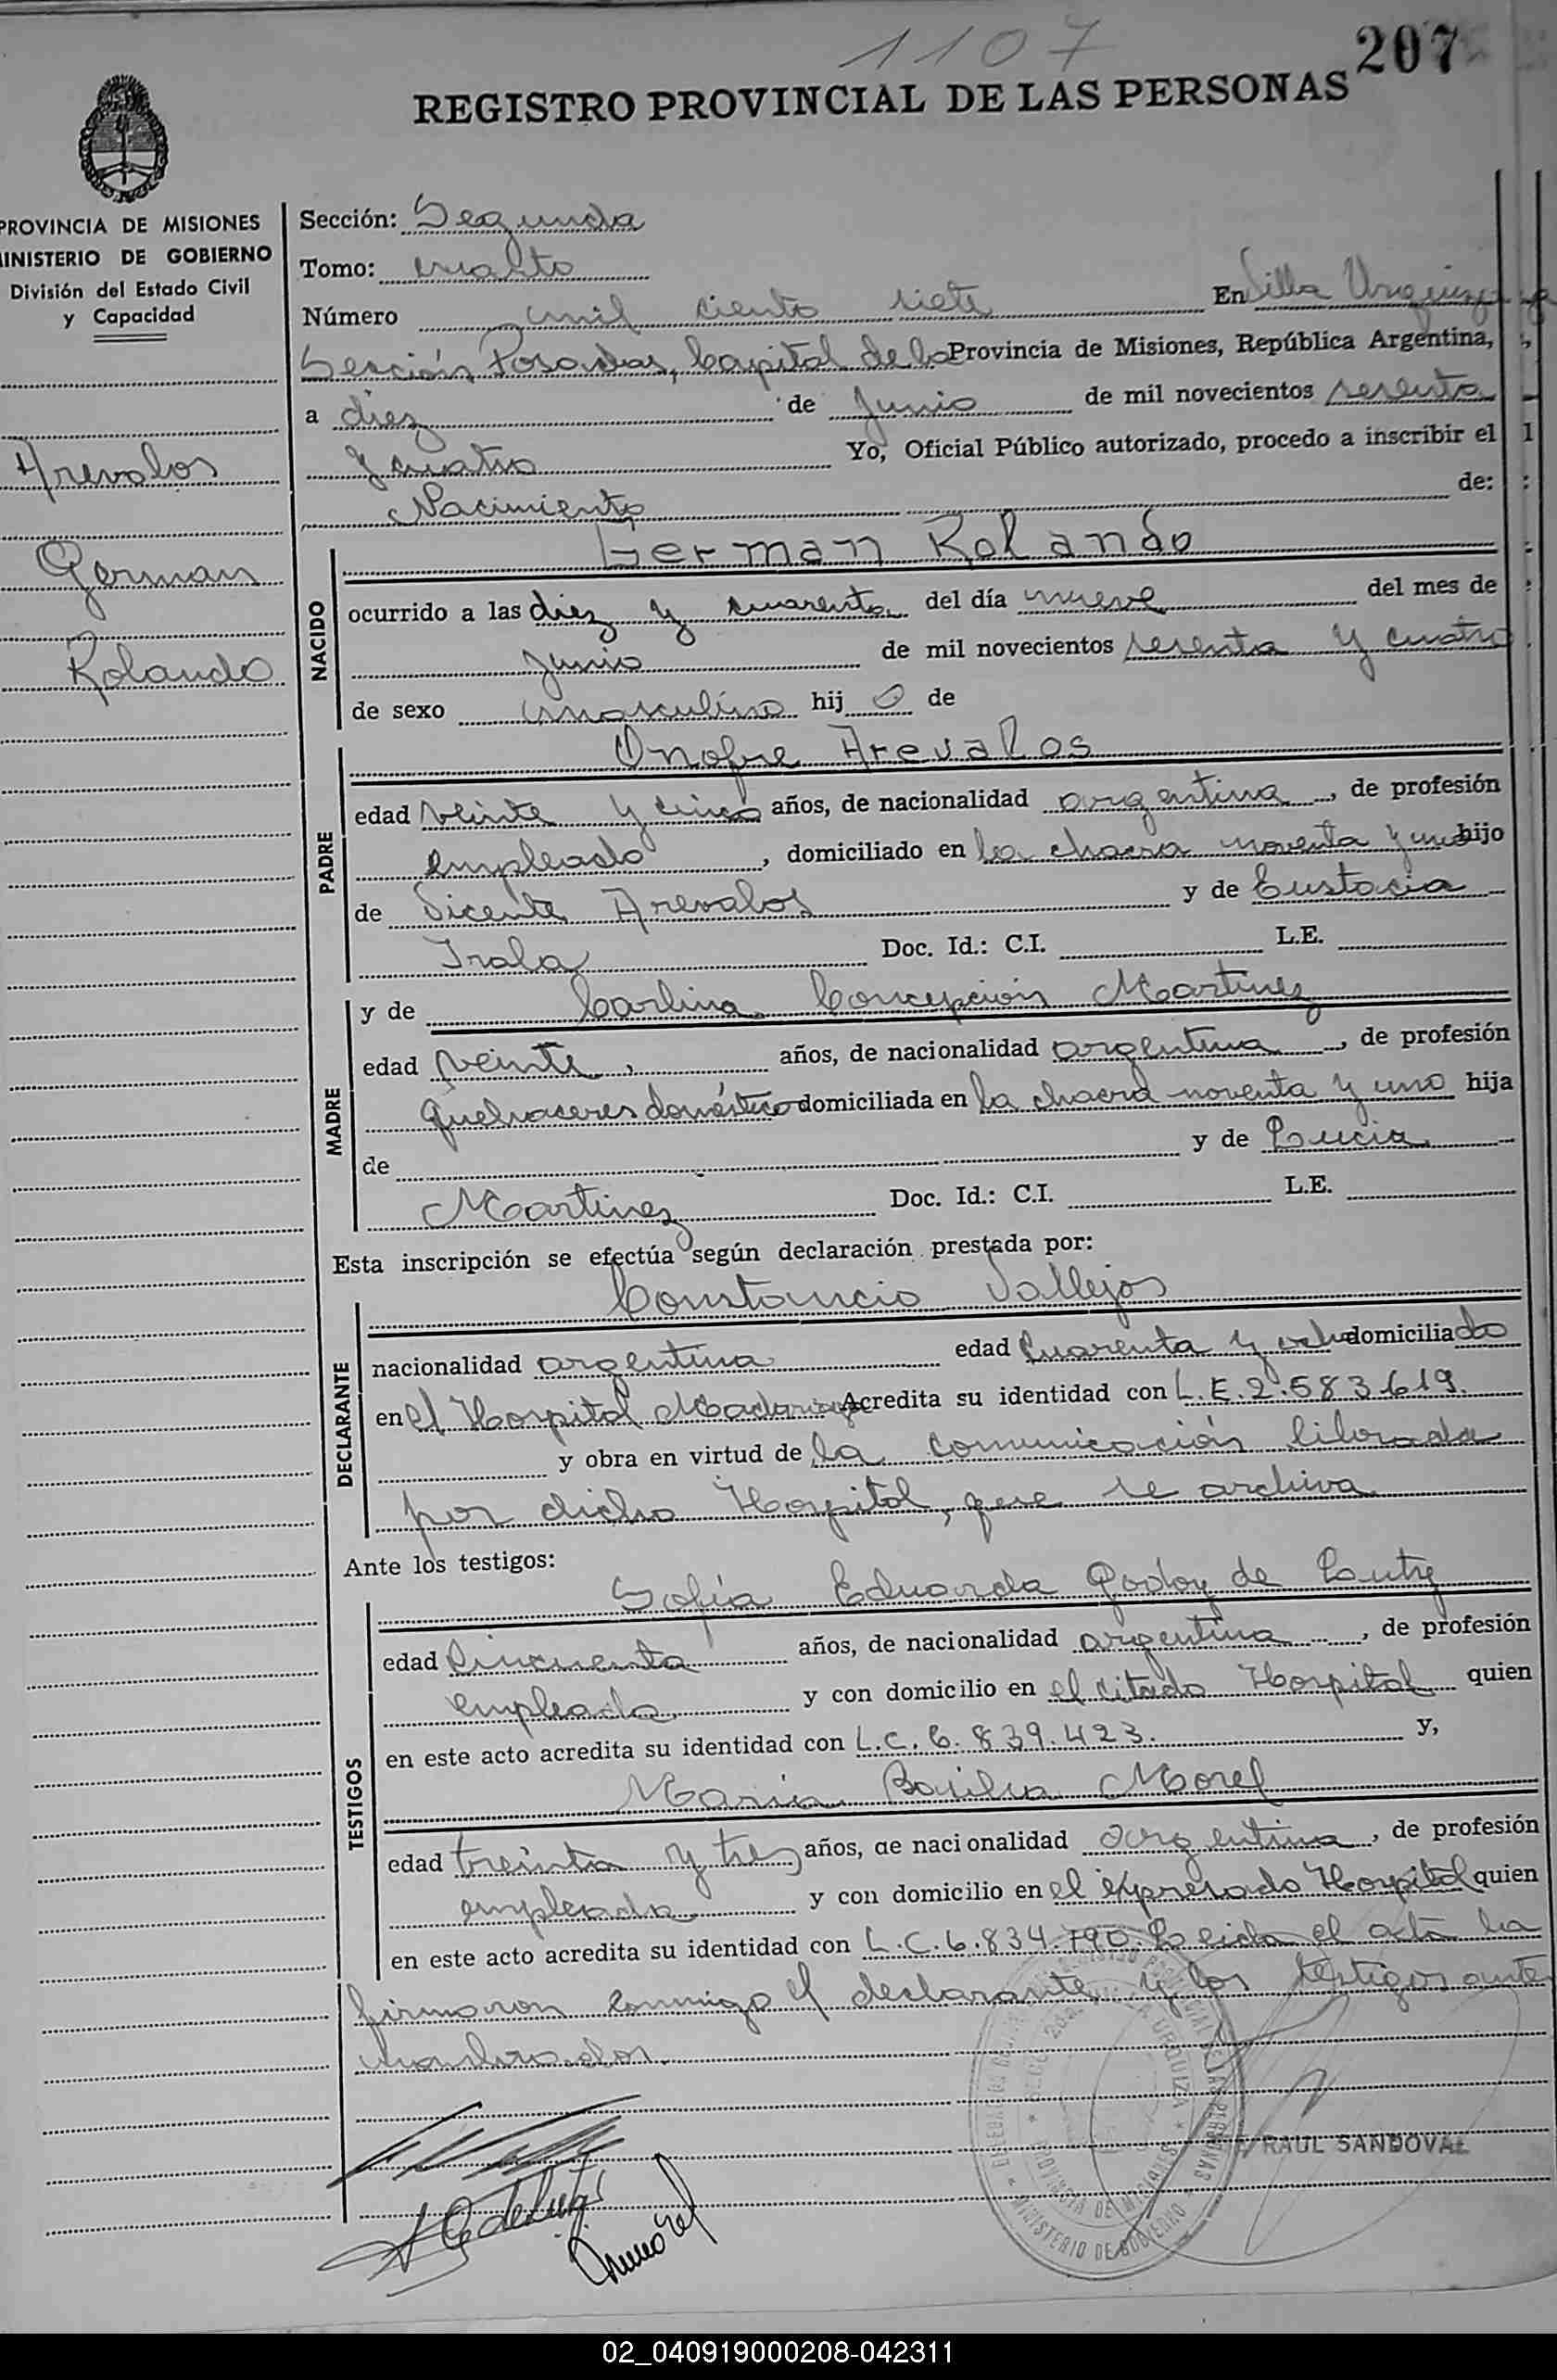 1107
207
REGISTRO PROVINCIAL DE LAS PERSONAS
PROVINCIA DE MISIONES
MINISTERIO DE GOBIERNO
División del Estado Civil
y Capacidad
Arevalos
German
Rolando
Sección: Segunda
Tomo: cuarto
Número mil ciento siete En Villa Urquiza
Sección, Posadas, Capital de la Provincia de Misiones, República Argentina,
a diez de Junio de mil novecientos setenta
y cuatro Yo, Oficial Público autorizado, procedo a inscribir el
Nacimiento de:
NACIDO
German Rolando
ocurrido a las diez y cuarenta del día nueve del mes de
Junio de mil novecientos setenta y cuatro
de sexo masculino hij o de
PADRE
Onofre Arevalos
edad veinte y cinco años, de nacionalidad argentina, de profesión
empleado, domiciliado en la chacra noventa y uno hijo
de Vicente Arevalos y de Eustacia
Irala Doc. Id.: C.I. L.E.
MADRE
y de Carlina Concepción Martinez
edad veinte, años, de nacionalidad argentina, de profesión
quehaceres doméstico domiciliada en la chacra noventa y uno hija
de y de Lucia
Martinez Doc. Id.: C.I. L.E.
Esta inscripción se efectúa según declaración prestada por:
DECLARANTE
Constancio Vallejos
nacionalidad argentina edad cuarenta y ocho domiciliado
en el Hospital Madariaga Acredita su identidad con L.E. 2.583.619.
y obra en virtud de la comunicación librada
por dicho Hospital, que se archiva
Ante los testigos:
TESTIGOS
Sofía Eduarda Godoy de Lutz
edad cincuenta años, de nacionalidad argentina, de profesión
empleada y con domicilio en el citado Hospital quien
en este acto acredita su identidad con L.C. 6.839.423. y,
Maria Basilia Morel
edad treinta y tres años, de nacionalidad argentina, de profesión
empleada y con domicilio en el expresado Hospital quien
en este acto acredita su identidad con L.C. 6.834.790. Leida el acta la
firmaron conmigo el declarante y los testigos ante
nombrados.
RAUL SANDOVAL
MINISTERIO DE GOBIERNO
PROVINCIA DE MISIONES
02_040919000208-042311